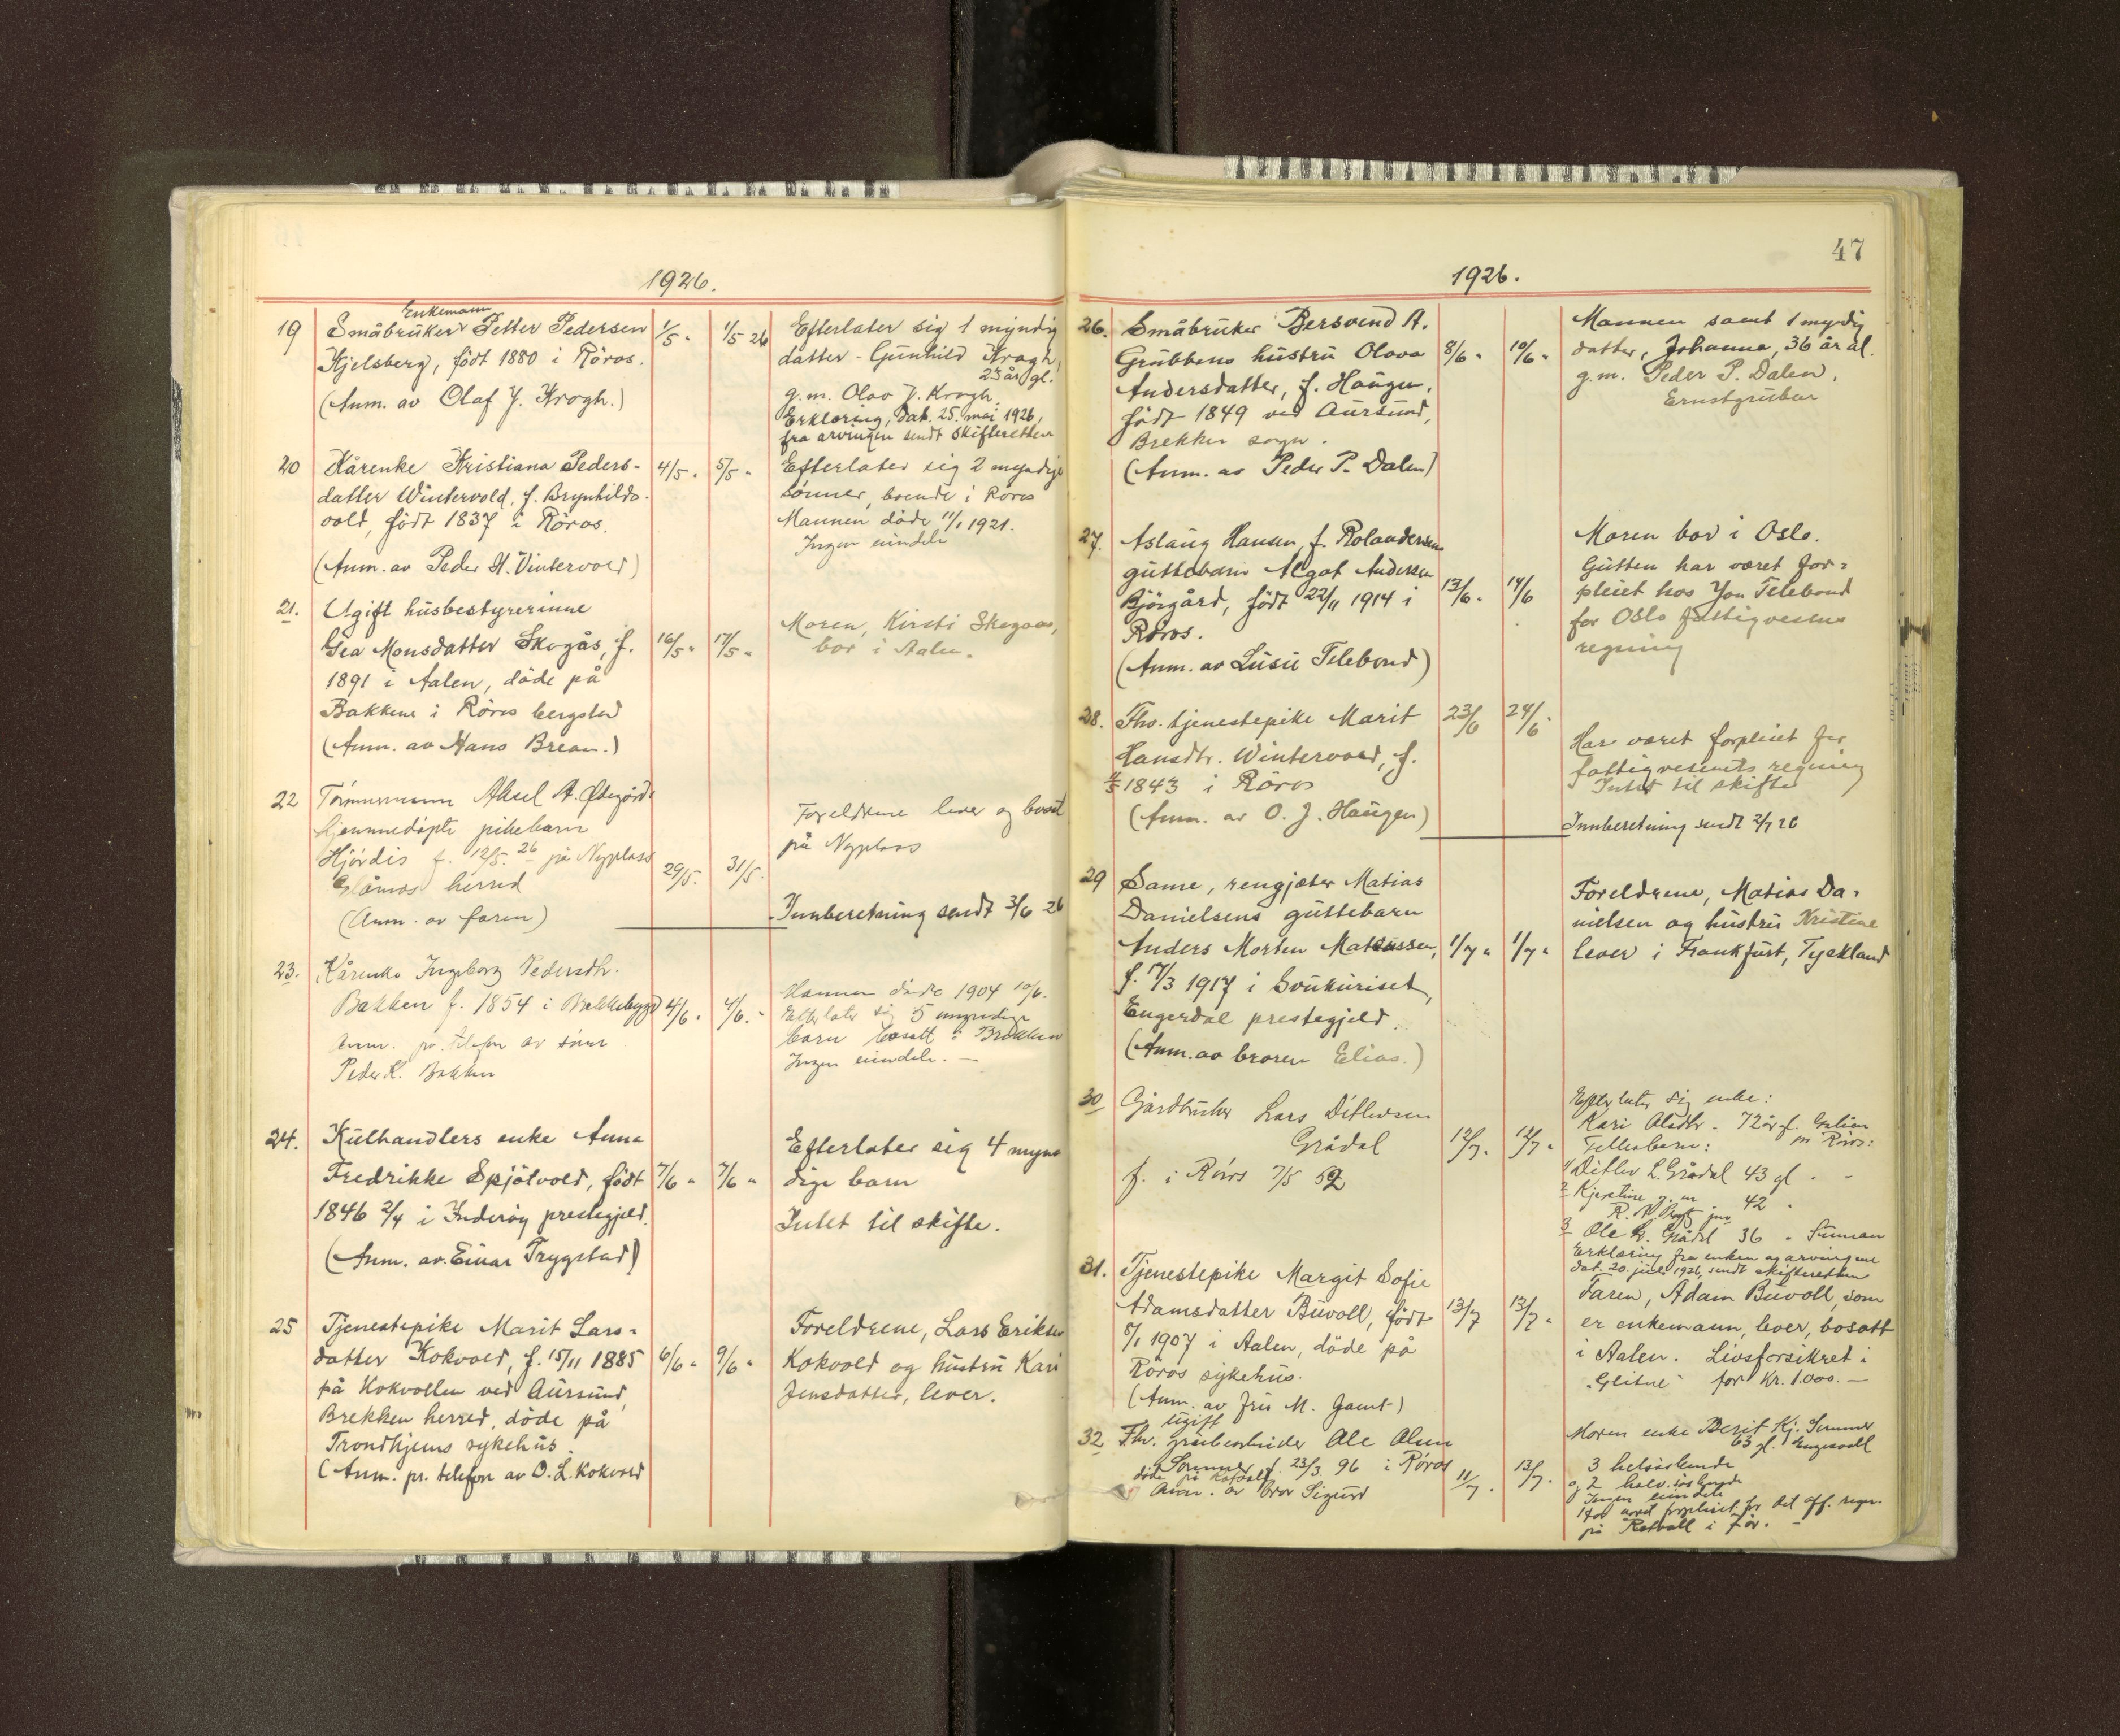 1926.
19
Enkemann
Småbruker Petter Pedersen
Hjelsberg, født 1880 i Röros.
(Anm. av Olaf J. Krogh.)
1/5 "
1/5 26
Efterlater sig 1 myndig
datter - Gunhild Krogh,
23 år gl.
g.m. Olav J. Krogh
Erklæring, dat. 25. mai 1926,
fra arvingen sendt skifteretten
20
Kårenke Kristiana Peders-
datter Wintervold, f. Brynhilds-
vold, født 1837 i Röros.
(Anm. av Peder H. Vintervold)
4/5 "
5/5 "
Efterlater sig 2 myndige
sönner, boende i Röros
Mannen döde 11/1 1921.
Ingen eiendele
21.
Ugift husbestyrerinne
Gea Monsdatter Skogås, f.
1891 i Aalen, döde på
Bakkene i Röros bergstad
(Anm. av Hans Brean.)
16/5 "
17/5 "
Moren, Kirsti Skogaas,
bor i Aalen.
22
Tömmermann Aksel A. Østegårds
hjemmedöpte pikebarn
Hjördis f. 12/5. 26 på Nyplass
Glåmos herred
(Anm. av faren)
29/5.
31/5.
Foreldrene lever og bosatt
på Nyplass
Innberetning sendt 3/6 26
23.
Kårenke Ingeborg Pedersdtr.
Bakken f. 1854 i Brekkebygd
Anm. pr. telefon av sönn
Peder K. Bakken
4/6 "
4/6. "
Mannen döde 1904 10/6.
Etterlater sig 5 myndige
barn bosatt i Brekken
Ingen eiendele. —
24.
Kulhandlers enke Anna
Fredrikke Spjötvold, født
1846 2/4 i Inderöy prestegjeld.
(Anm. av. Einar Trygstad)
7/6 "
7/6 "
Efterlater sig 4 myn-
dige barn
Intet til skifte.
25
Tjenestepike Marit Lars-
datter Kokvold, f. 15/11 1885
på Kokvollen ved Aursund,
Brekken herred, döde på
Trondhjems sykehus.
(Anm. pr. telefon av O. L. Kokvold
6/6 "
9/6 "
Foreldrene, Lars Eriksen
Kokvold og hustru Kari
Jensdatter, lever.
47
1926.
26.
Småbruker Bersvend A.
Grubbens hustru Olava
Andersdatter, f. Haugen.
født 1849 ved Aursund,
Brekken sogn.
(Anm. av Peder P. Dalen)
8/6 "
10/6 "
Mannen samt 1 myndig
datter, Johanna, 36 år gl.
g.m. Peder P. Dalen,
Ernstgruben
27.
Aslaug Hansen, f. Rolandersens
guttebarn Algot Andersen
Björgård, født 22/11 1914 i
Röros.
(Anm. av Lusie Telebond)
13/6 "
14/6
Moren bor i Oslo.
Gutten har været for-
pleiet hos Jon Telebond
for Oslo fattigvesens
regning
28.
Fhv. tjenestepike Marit
Hansdtr. Wintervold, f.
1843 i Röros
(Anm. av O. J. Haugen)
23/6
24/6
Har været forpleiet for
fattigvesenets regning
Intet til skifte
Innberetning sendt 2/7 26
29
Same, rengjæter Matias
Danielsens guttebarn
Anders Morten Matiussen,
f. 17/3 1917 i Svukuriset,
Engerdal prestegjeld.
(Anm. av broren Elias.)
1/7 "
1/7 "
Foreldrene, Matias Da-
nielsen og hustru Kristine
lever i Frankfurt, Tyskland
30
Gårdbruker Lars Ditlevsen
Grådal
f. i Röros 7/5 52
12/7.
12/7 "
Efterlater sig enke:
Kari Olsdtr. 72 år f.
Fellesbarn:
1/ Ditlev L. Grådal 43 gl
2 g. m 42
3 Ole L. Grådal 36
Erklæring fra enken og arvingene
dat. 20. juli 1926, sendt skifteretten
31.
Tjenestepike Margit Sofie
Adamsdatter Buvoll, født
5/1 1907 i Aalen, döde på
Röros sykehus.
(Anm. av fru M. Jamt)
13/7
13/7 "
Faren, Adam Buvoll, som
er enkemann, lever, bosatt
i Aalen. Livsforsikret i
"Glitne" for Kr. 1.000. —
32
ugift
Fhv. grubearbeider Ole Olsen
Sommer f. 23/3. 96 i Röros
döde på Rotvoll
Anm. av bror Sigurd
11/7.
13/7.
Moren enke Berit Kj. Sommer
63 gl. Engesvoll
3 helsöskende
og 2 halv. söskende
Ingen eiendele
Har været forpleiet for det off. regn.
på Rotvoll i 7 år. —